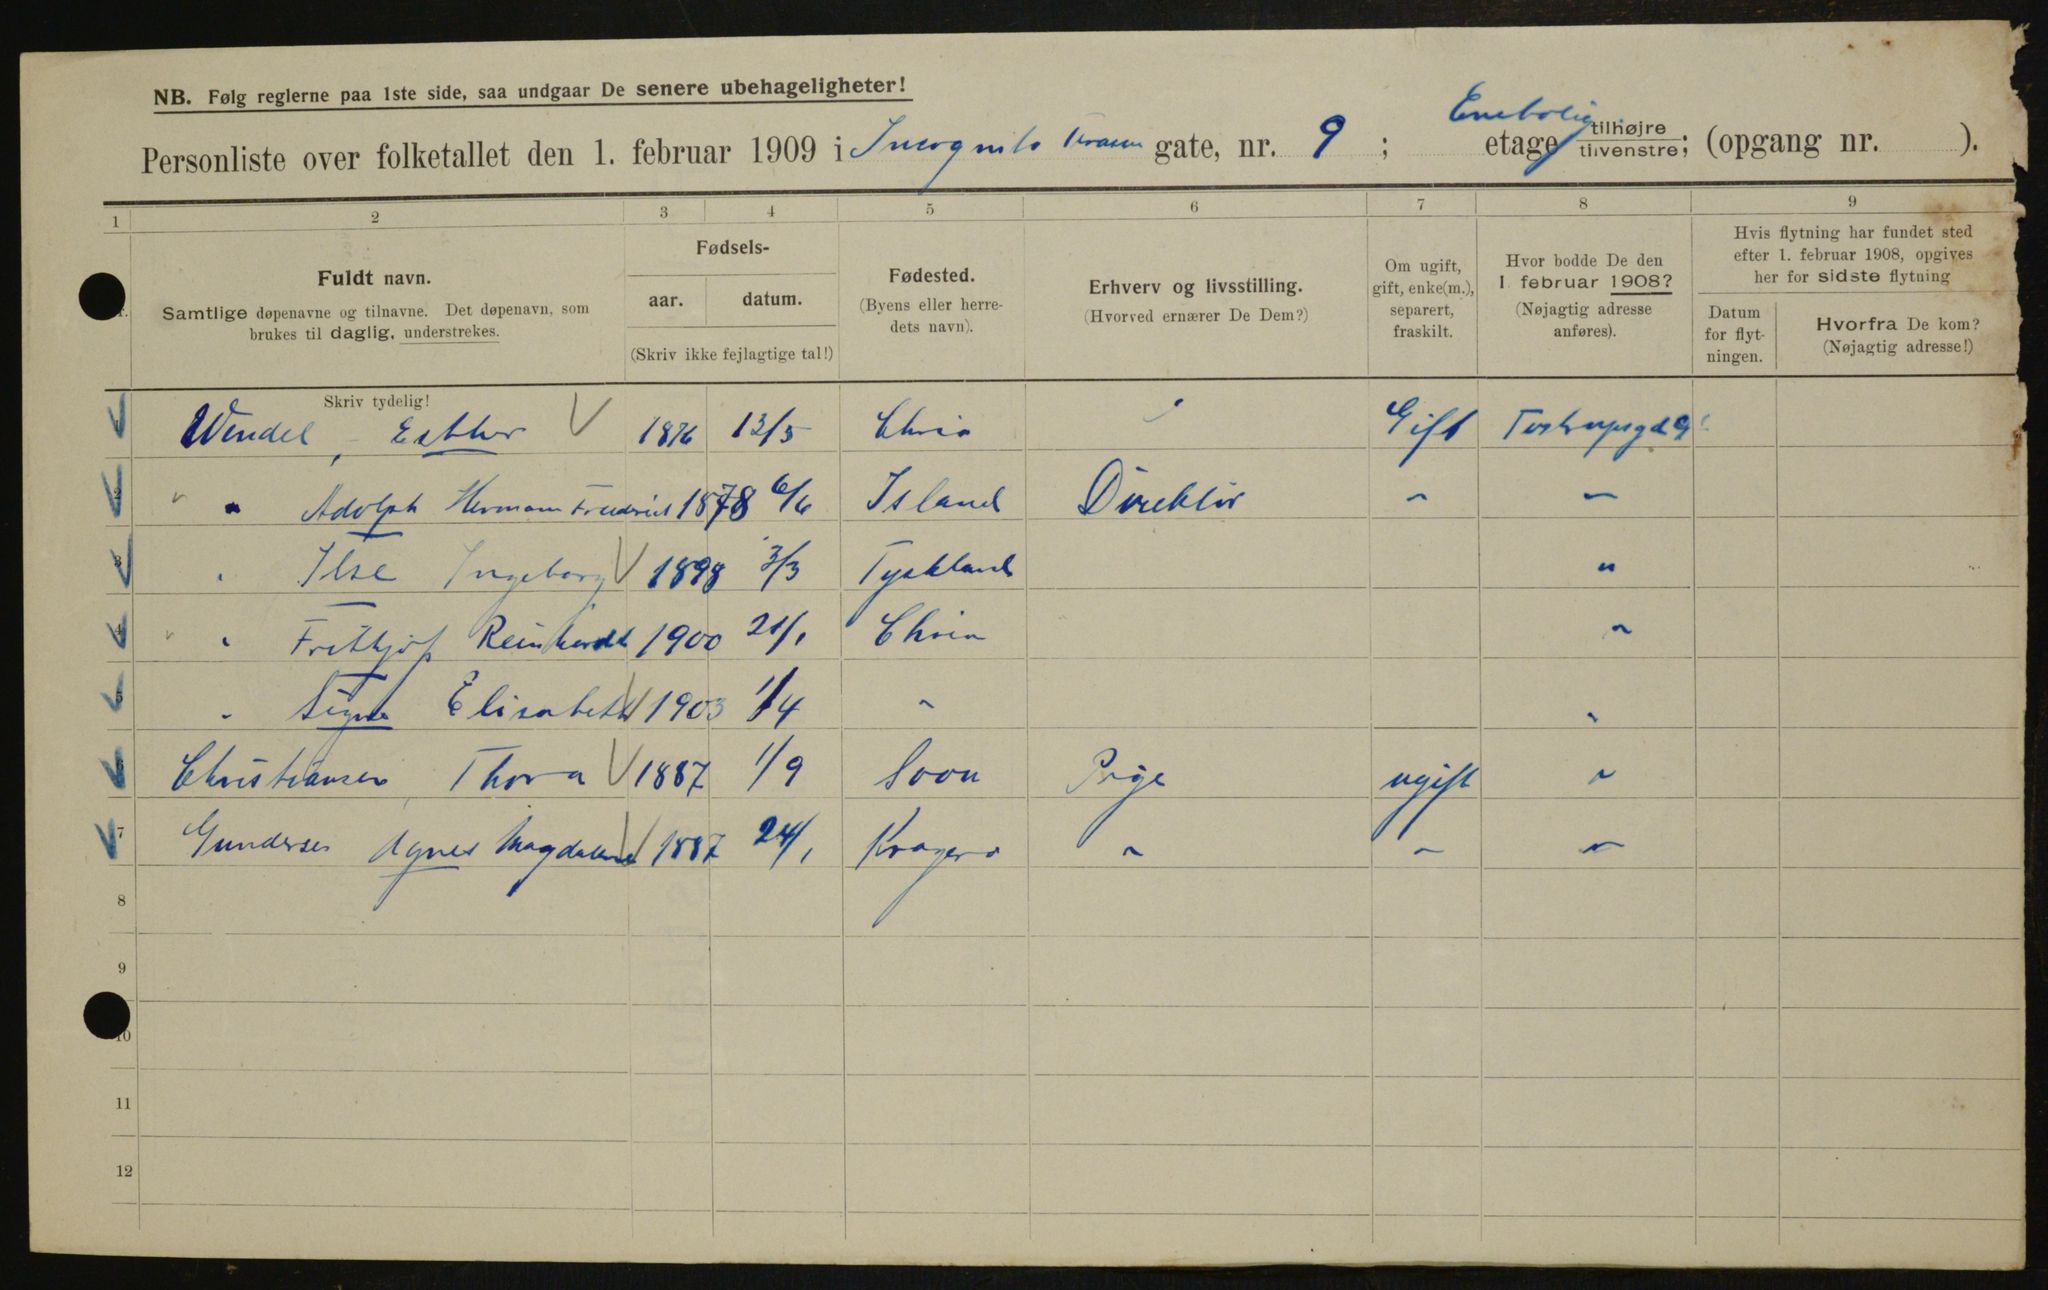 NB. Følg reglerne paa 1ste side, saa undgaar De senere ubehageligheter!
Enebolig
Personliste over folketallet den 1. februar 1909 i Incognito Terassen gate, nr. 9 ; etage tilhøjre tilvenstre; (opgang nr. ).
1 2 3 4 5 6 7 8 9
Fuldt navn.
Samtlige døpenavne og tilnavne. Det døpenavn, som
brukes til daglig, understrekes.
Fødsels-
aar. datum.
(Skriv ikke fejlagtige tal!)
Fødested.
(Byens eller herre-
dets navn).
Erhverv og livsstilling.
(Hvorved ernærer De Dem?)
Om ugift,
gift, enke(m.),
separert,
fraskilt.
Hvor bodde De den
1. februar 1908?
(Nøjagtig adresse
anføres).
Hvis flytning har fundet sted
efter 1. februar 1908, opgives
her for sidste flytning
Datum
for flyt-
ningen.
Hvorfra De kom?
(Nøjagtig adresse!)
Skriv tydelig!
Wendel, Esther 1876 13/5 Chria Gift
2 " Adolph Hermann Friedrich 1878 6/6 Island Direktør " "
3 " Ilse Ingeborg 1898 3/3 Tyskland "
4 " Frithjof Reinhardt 1900 21/1 Chria "
5 " Signe Elisabeth 1903 1/4 " "
6 Christiansen, Thora 1887 1/9 Soon Pige ugift "
7 Gundersen Agnes Magdalene 1887 24/1 Kragerø " " "
8
9
10
11
12